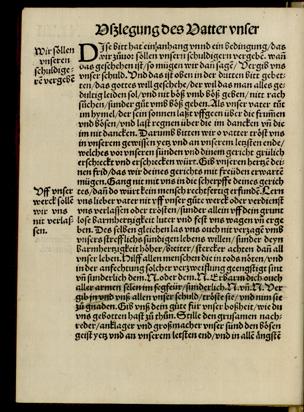 Vßzlegung des Vatter vnser
Wir söllen
vnseren
schuldige-
rē vergebē
Dise bitt hat ein anhang vnnd ein bedingung/ das
wir zůuor söllen vnsern schuldigern vergebē. wañ
das geschehen ist/ so mügen wir dan sagē/ Vergib vns
vnser schuld. Vnd das ist oben in der dritten bitt gebet-
ten/ das gottes will geschehe/ der wil das man alles ge-
dultig leiden sol/ vnd nit böß vmb böß geben/ nitt rach
süchen/ sunder gůt vmb böß geben. Als vnser vater tůt
im hymel/ der sein sonnen laßt vffgeen über die frumen
vnd bösen/ vnd laßt regnen über die im dancken vñ die
im nit dancken. Darumb bitten wir o vatter tröst vns
in vnserem gewissen yetz vnd an vnserem letsten ende/
welches vor vnseren sünden vnd deinem gericht grülich
erschreckt vnd erschrecken würt. Gib vnsern hertzē dei-
nen frid/ das wir deines gerichts mit freüden erwartē
mügen. Gang nit mit vns in die scherpffe deines gerich
tes/ dañ do würt kein mensch rechtfertig erfundē. Lern
vns lieber vater nit vff vnser gůte werck oder verdienst
vns verlassen oder trösten/ sunder allein vff dein grunt
lose barmhertzigkeit luter vnd fest vns wagen vñ erge
ben. Des selben gleichen las vns ouch nit verzagē vmb
vnsers strefflichs sündigen lebens willen/ sunder deyn
barmhertzigkeit höher/ breiter/ stercker achten dañ all
vnser leben. Hilff allen menschen die in tods nöten/ vnd
in der anfechtung solcher verzweiflung geengstiget sint
vñ sunderlich dem. N. oder dem. N. Erbarm dich ouch
aller armen selen im fegfeür/ sunderlich. N. vñ. N. Ver
gib jn vnd vnß allen vnser schuld/ tröste sie/ vnd nim sie
zů gnaden. Gib vnß dein gůte für vnser boßheit/ wie du
vns gebotten hast zů thůn. Stille den grusamen nach-
reder/ anklager vnd großmacher vnser sünd den bösen
geist yetz vnd an vnserem letsten end/ vnd in aller ängstē
Vff vnser
werck sollē
wir vns
nit verlas-
sen.